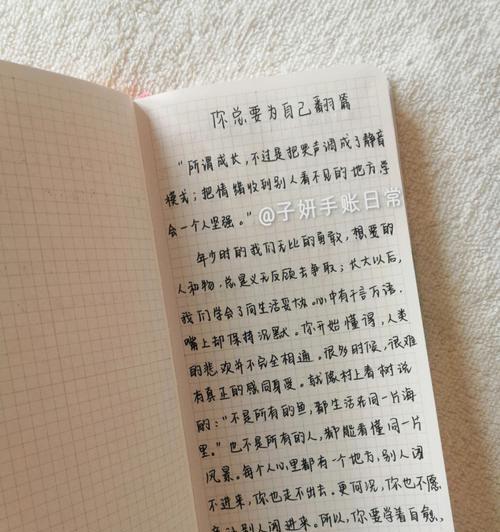 你总要为自己翻篇
“所谓成长，不过是把哭声调成了静音
模式；把情绪收到别人看不见的地方，学
会一个人坚强。”
@子妍手账日常
年少时的我们无比的勇敢，想要的
人和物，总是义无反顾去争取；长大以后，
我们学会了向生活妥协。心中有千言万语，
嘴上却保持沉默。你开始懂得，人类
的悲欢并不完全相通。很多时候，很难
有真正的感同身受。就像村上春树说
的：“不是所有的鱼，都生活在同一片海
里。”也不是所有的人，都能看懂同一片
风景。每个人心里都有一个地方，别人闯
不进来，你也走不出去。更何况，你也不愿
别人闯进来。所以，你要学着自愈，